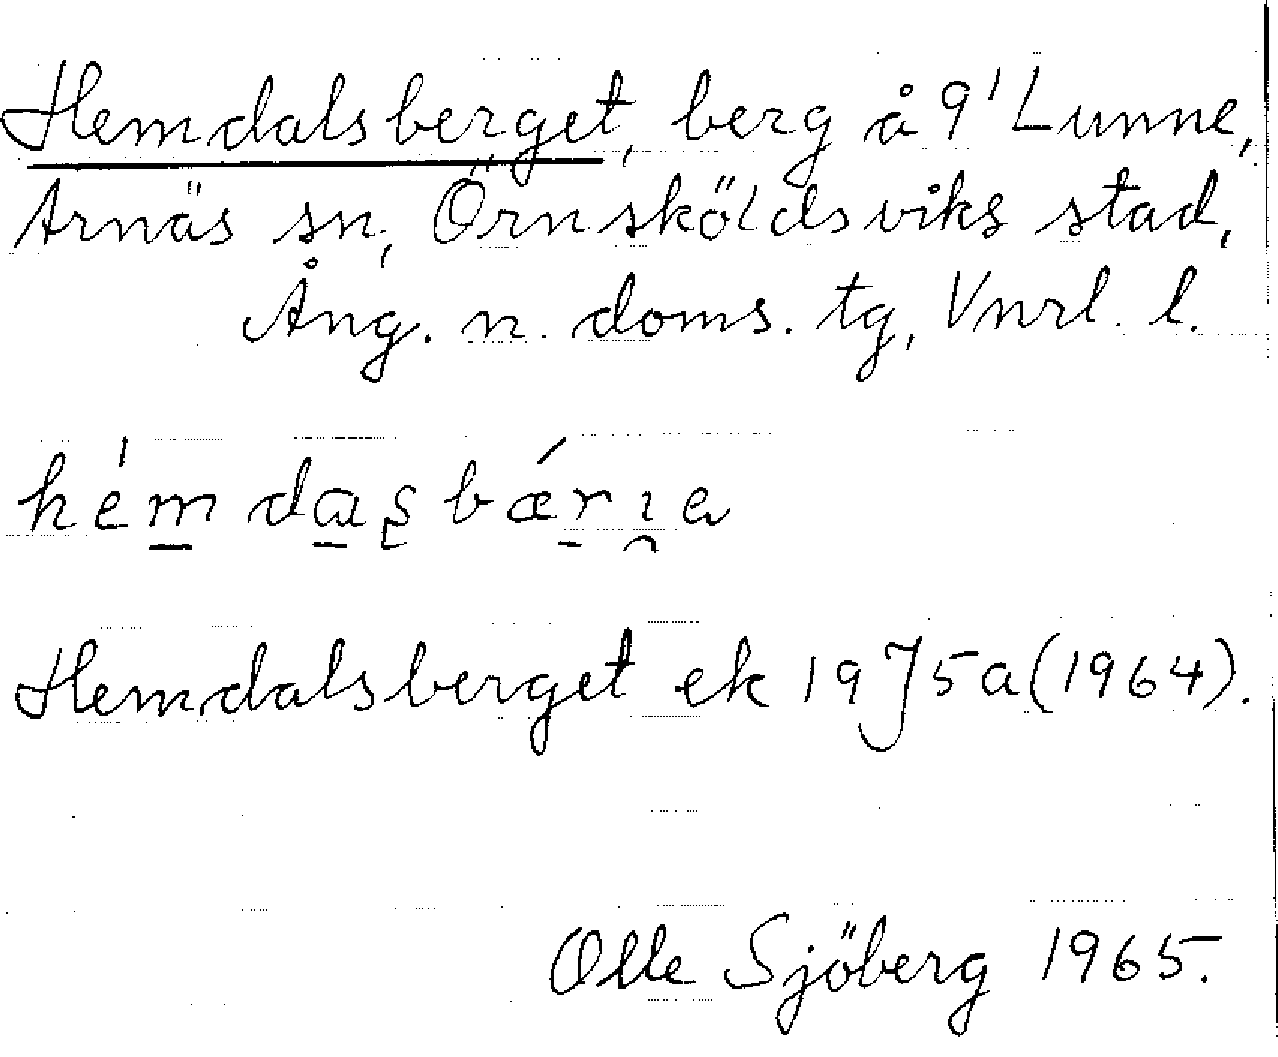 Hemdalsberget, berg å 9' Lunne,
Arnäs sn, Örnsköldsviks stad,
Ång. n. doms. tg, Vnrl. l.
hémdasbærıe
Hemdalsberget ek 19J5a(1964).
Olle Sjöberg 1965.